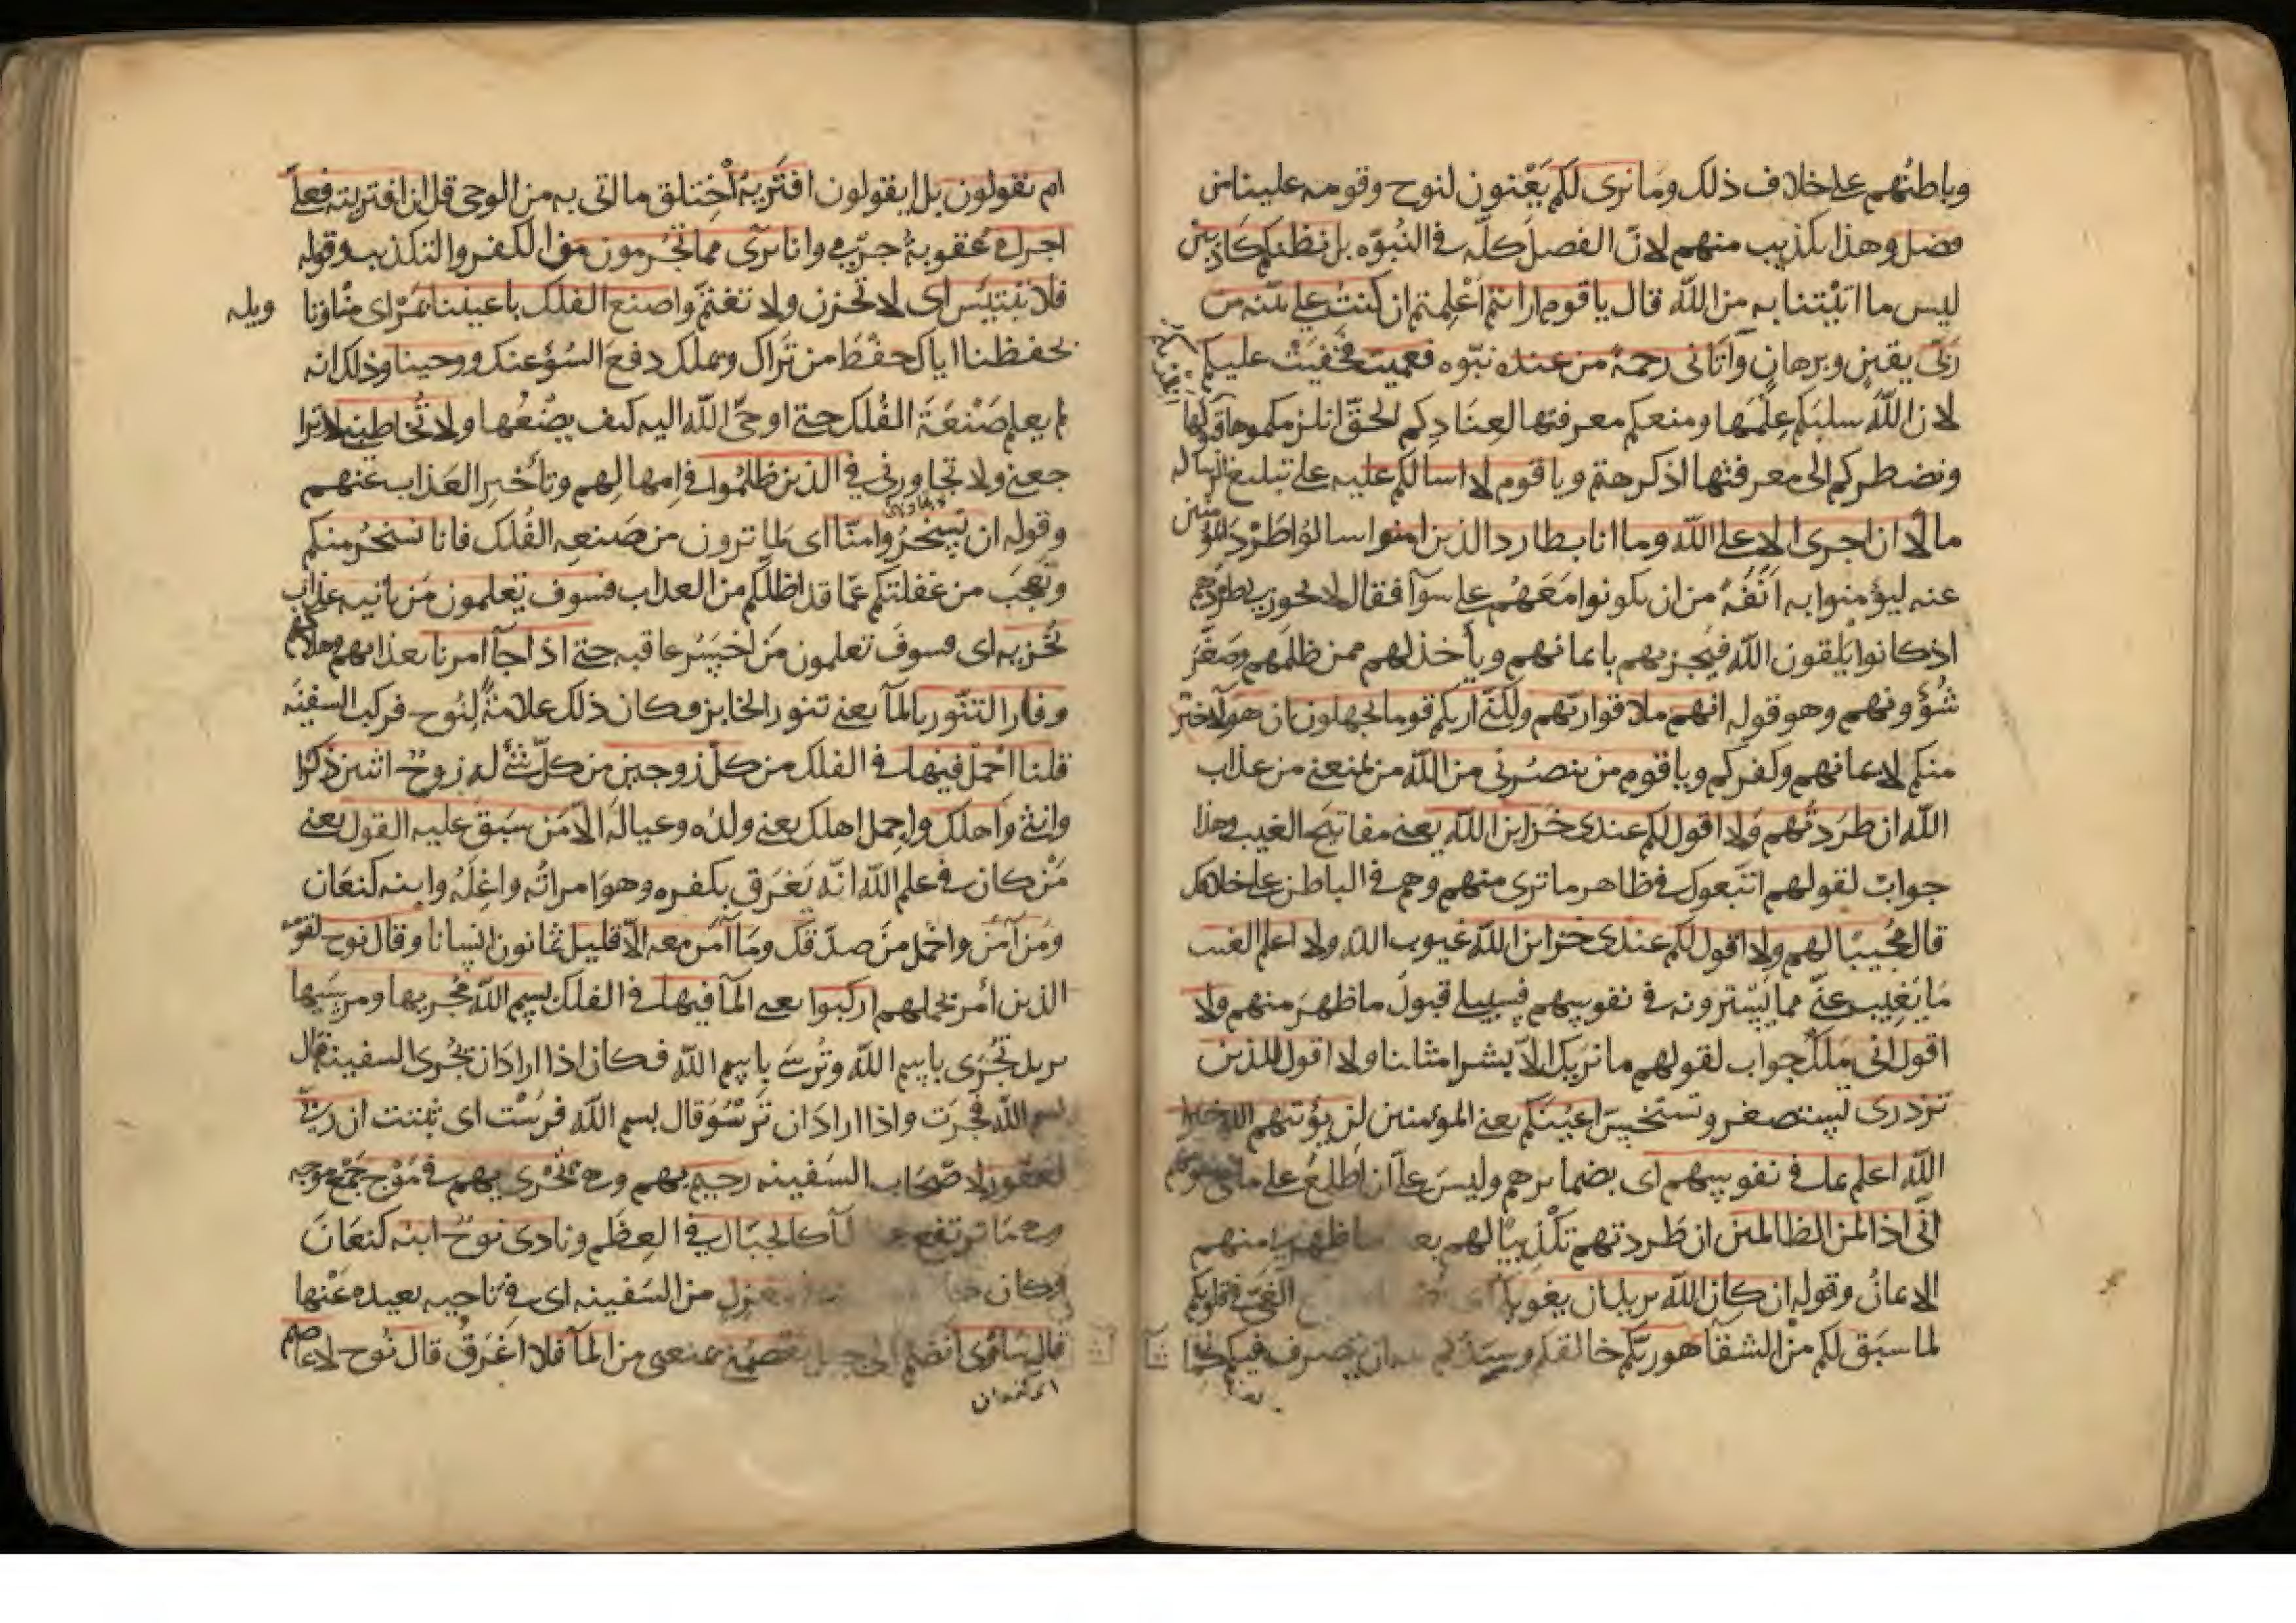 وباطنهم على خلاف ذلك وما نرى لكم يعنون لنوح وقومه علينا من
فضل وهذا تكذيب منهم لانّ الفضل كلّه في النبوّه بل نظنكم كاذبين
ليس ما اتيتنا به من الله قال ياقوم ارايتم اعلمتم ان كنت على بيّنه من
ربّى يقين وبرهان وآتانى رحمة من عنده نبوّه فعميت فخفيت عليكم
لان الله سلبكم علمها ومنعكم معرفتها لعنادكم الحقّ انلزمكموها
ونضطركم الى معرفتها اذ كرهتم وياقوم لا اسالكم عليه على تبليغ الرساله
مالًا ان اجرى الا على الله وما انا بطارد الذين امنوا سالوا طرد المؤمنين
عنه ليؤمنوا به انفةً من ان يكونوا معهم على سوآ فقال لا يجوز لى طردهم
اذ كانوا يلقون الله فيجزيهم بايمانهم وياخذ لهم ممن ظلمهم وصغّر
شؤونهم وهو قوله انهم ملاقوا ربّهم ولكنّى اريكم قوما تجهلون ان هولآ خير
منكم لايمانهم وكفركم وياقوم من ينصرنى من الله من يمنعنى من عذاب
الله ان طردتهم ولا اقول لكم عندى خزاين الله يعنى مفاتيح الغيب وهذا
جواب لقولهم اتبعوك في ظاهر ما ترى منهم وهم في الباطن على خلافك
قال مجيبًا لهم ولا اقول لكم عندى خزاين الله غيوب الله ولا اعلم الغيب
ما يغيب عنّى مما يسترونه في نفوسهم فسبيلى قبول ما ظهر منهم ولا
اقول انى ملك جواب لقولهم ما نريك الّا بشرا مثلنا ولا اقول للذين
تزدرى تستصغر وتستخسّ اعينكم يعنى المؤمنين لن يؤتيهم الله خيرا
الله اعلم بما في نفوسهم اى بضمايرهم وليس علىّ ان اطلع على ما في نفوسهم
انّى اذا لمن الظالمين ان طردتهم تكذيبًا لهم بعد ما ظهر لى منهم
الايمان وقوله ان كان الله يريد ان يغويكم اى الغىّ في قلوبكم
لما سبق لكم من الشقآ هو ربّكم خالقكم وسيدكم ان يتصرف فيكم كما
ام يقولون بل ايقولون افتريه اختلق ما اتى به من الوحى قل ان افتريته فعلىّ
اجرامى عقوبة جرمى وانا برىٓ مما تجرمون من الكفر والتكذيب وقوله
فلا تبتئس اى لا تحزن ولا تغتمّ واصنع الفلك باعيننا بمرْاى منّا وتاويله
بحفظنا اياك حفظ من يراك ويملك دفع السوء عنك ووحينا وذلك انه
لم يعلم صنعة الفلك حتى اوحى الله اليه كيف يصنعها ولا تخاطبنى لا ترا
جعنى ولا تجاورنى في الذين ظلموا في امهالهم وتأخير العذاب عنهم
وقوله ان تسخروا منّا اى لما ترون من صنعه الفلك فانا نسخر منكم
ونعجب من غفلتكم عمّا قد اظلّكم من العذاب فسوف تعلمون من ياتيه عذاب
يُخزيه اى فسوف تعلمون من اخسر عاقبه حتى اذا جآ امرنا بعذابهم وهلاكهم
وفار التنّور بالمآ يعنى تنور الخابز وكان ذلك علامةً لنوح فركب السفينه
قلنا احمل فيها في الفلك من كلّ زوجين من كلّ شئ له زوج اثنين ذكرا
وانثى واهلك واحمل اهلك يعنى ولده وعياله الّا من سبق عليه القول يعنى
من كان في علم الله انّه يغرق بكفره وهو امراته واغلة وابنه كنعان
ومن آمن واحمل من صدّقك وما آمن معه الّا قليل ثمانون انسانا وقال نوح لقومه
الذين أمر بحملهم اركبوا يعنى المآ فيها في الفلك بسم الله مجريها ومرسيها
يريد تُجرى باسم الله وتُرسى باسم الله فكان اذا اراد ان تجرى السفينه قال
بسم الله فجرت واذا اراد ان ترسو قال بسم الله فرست اى ثبتت ان ربّى
لغفور لاصحاب السفينه رحيم بهم وهى تجرى بهم في موج جمع موجه
وهى ما يرتفع من المآ كالجبال في العظم ونادى نوح ابنه كنعان
وكان في معزل من السفينه اى في ناحيه بعيده عنها
قال سآوى انضم الى جبل يعصمنى يمنعنى من المآ فلا اغرق قال نوح لا عاصم
اى كنعان